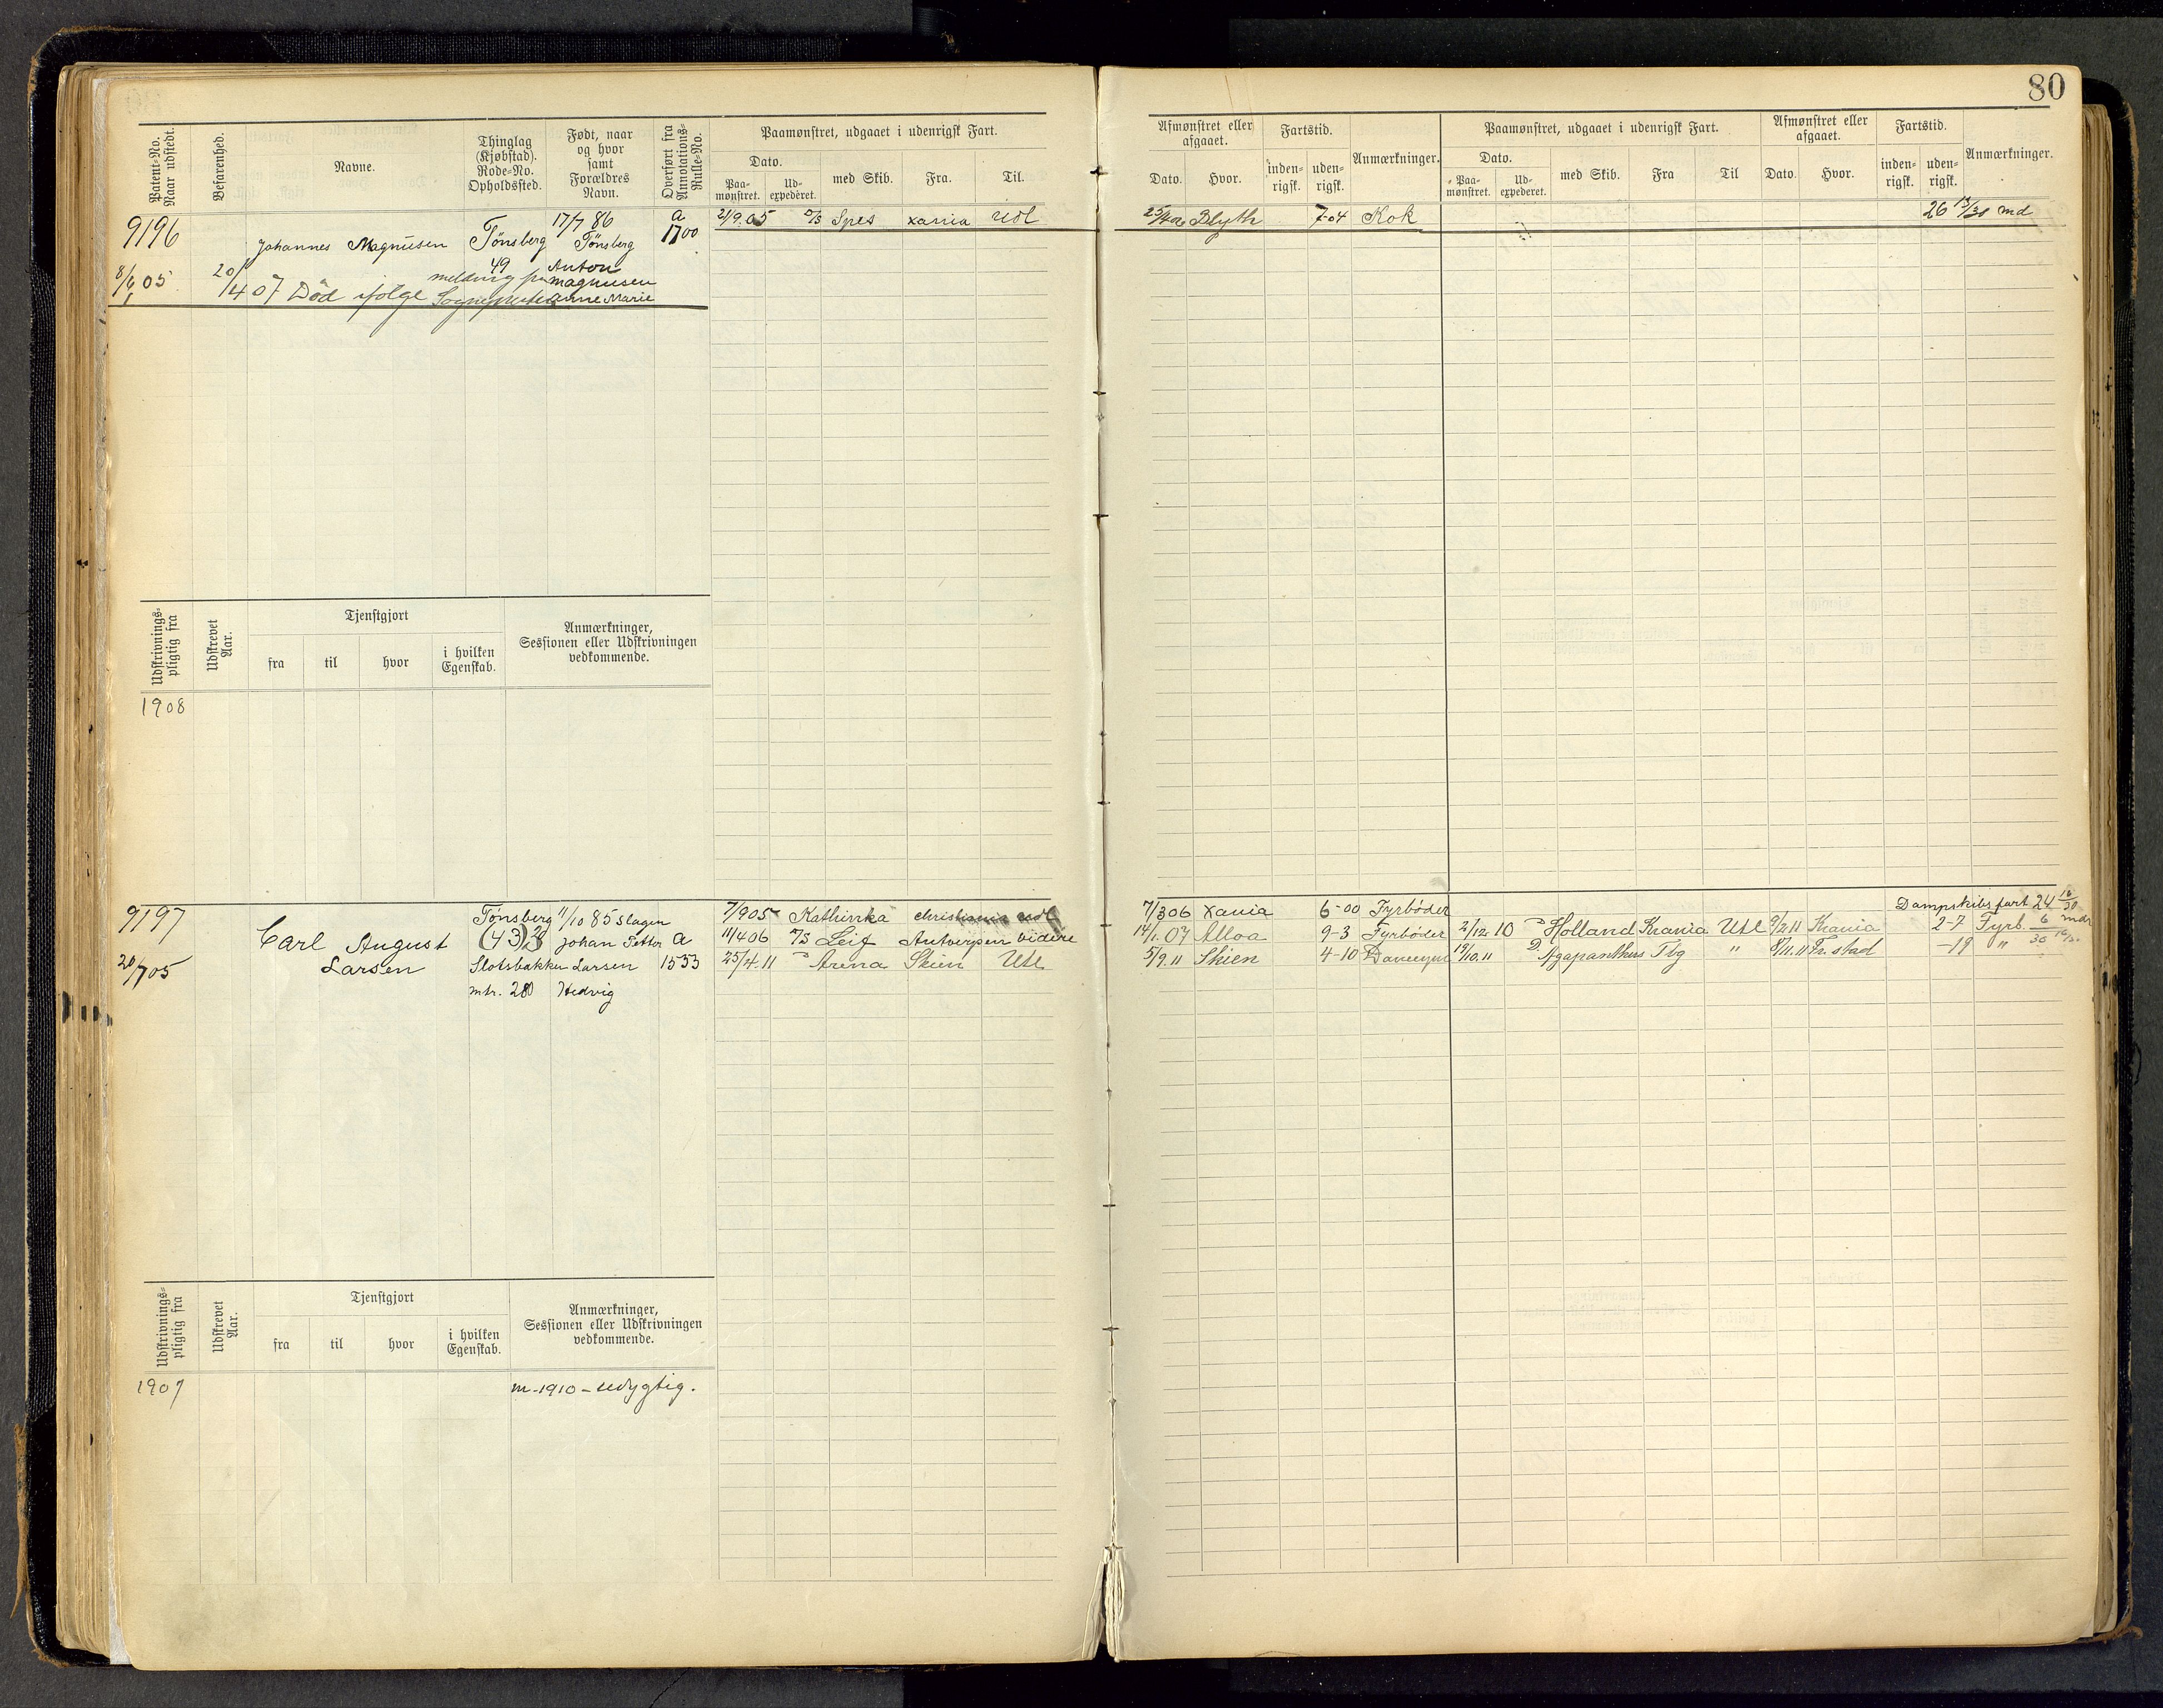 80
Patent-No. Naar udstedt.
Befarenhed.
Navne.
Thinglag (Kjøbstad). Rode-No. Opholdssted.
Født, naar og hvor samt Forældres Navn.
Overført fra Annotations-Rulle-No.
Paamønstret, udgaaet i udenrigsk Fart.
Dato.
Paa-mønstret.
Ud-expederet.
med Skib.
Fra.
Til.
Afmønstret eller afgaaet.
Dato.
Hvor.
Fartstid.
inden-rigsk.
uden-rigsk.
Anmærkninger.
Paamønstret, udgaaet i udenrigsk Fart.
Dato.
Paa-mønstret.
Ud-expederet.
med Skib.
Fra
Til
Afmønstret eller afgaaet.
Dato.
Hvor.
Fartstid.
inden-rigsk.
uden-rigsk.
Anmærkninger.
9196
Johannes Magnusen
Tönsberg
49
17/7 86
Tönsberg
Anton
Magnusen
Anne Marie
a
1700
8/6 05
20/4 07 Död ifölge melding fra Sognepresten
2/9.05 Spes xania Udl
Blyth 7-04 Kok
26 13/30 md
Udskrivnings-pligtig fra
Udskrevet Aar.
Tjenstgjort
fra
til
hvor
i hvilken Egenskab.
Anmærkninger, Sessionen eller Udskrivningen vedkommende.
1908
9197
20/7 05
Carl August
Larsen
Tönsberg
(43)
Slotsbakken
mtr. 280
11/10 85 Slagen
Johan Petter
Larsen
Hedvig
a
1553
7/9 05 Kathinka Christiania udl
11/4 06 Leif Antverpen videre
25/4.11 Arena Skien Utl
7/3 06 xania 6-00 Fyrböder
14/1.07 Alloa 9-3 Fyrböder
5/9.11 Skien 4-10
Dampskibsfart 24 16/30 mdr
2/12 10 Holland Krania Utl 9/2 11 Krania 2-7 Fyrb.
19/10.11 D Agapanthus Tbg " 8/11.11 Fr.stad -19 "
Udskrivnings-pligtig fra
Udskrevet Aar.
Tjenstgjort
fra
til
hvor
i hvilken Egenskab.
Anmærkninger, Sessionen eller Udskrivningen vedkommende.
1907
m-1910-udygtig.